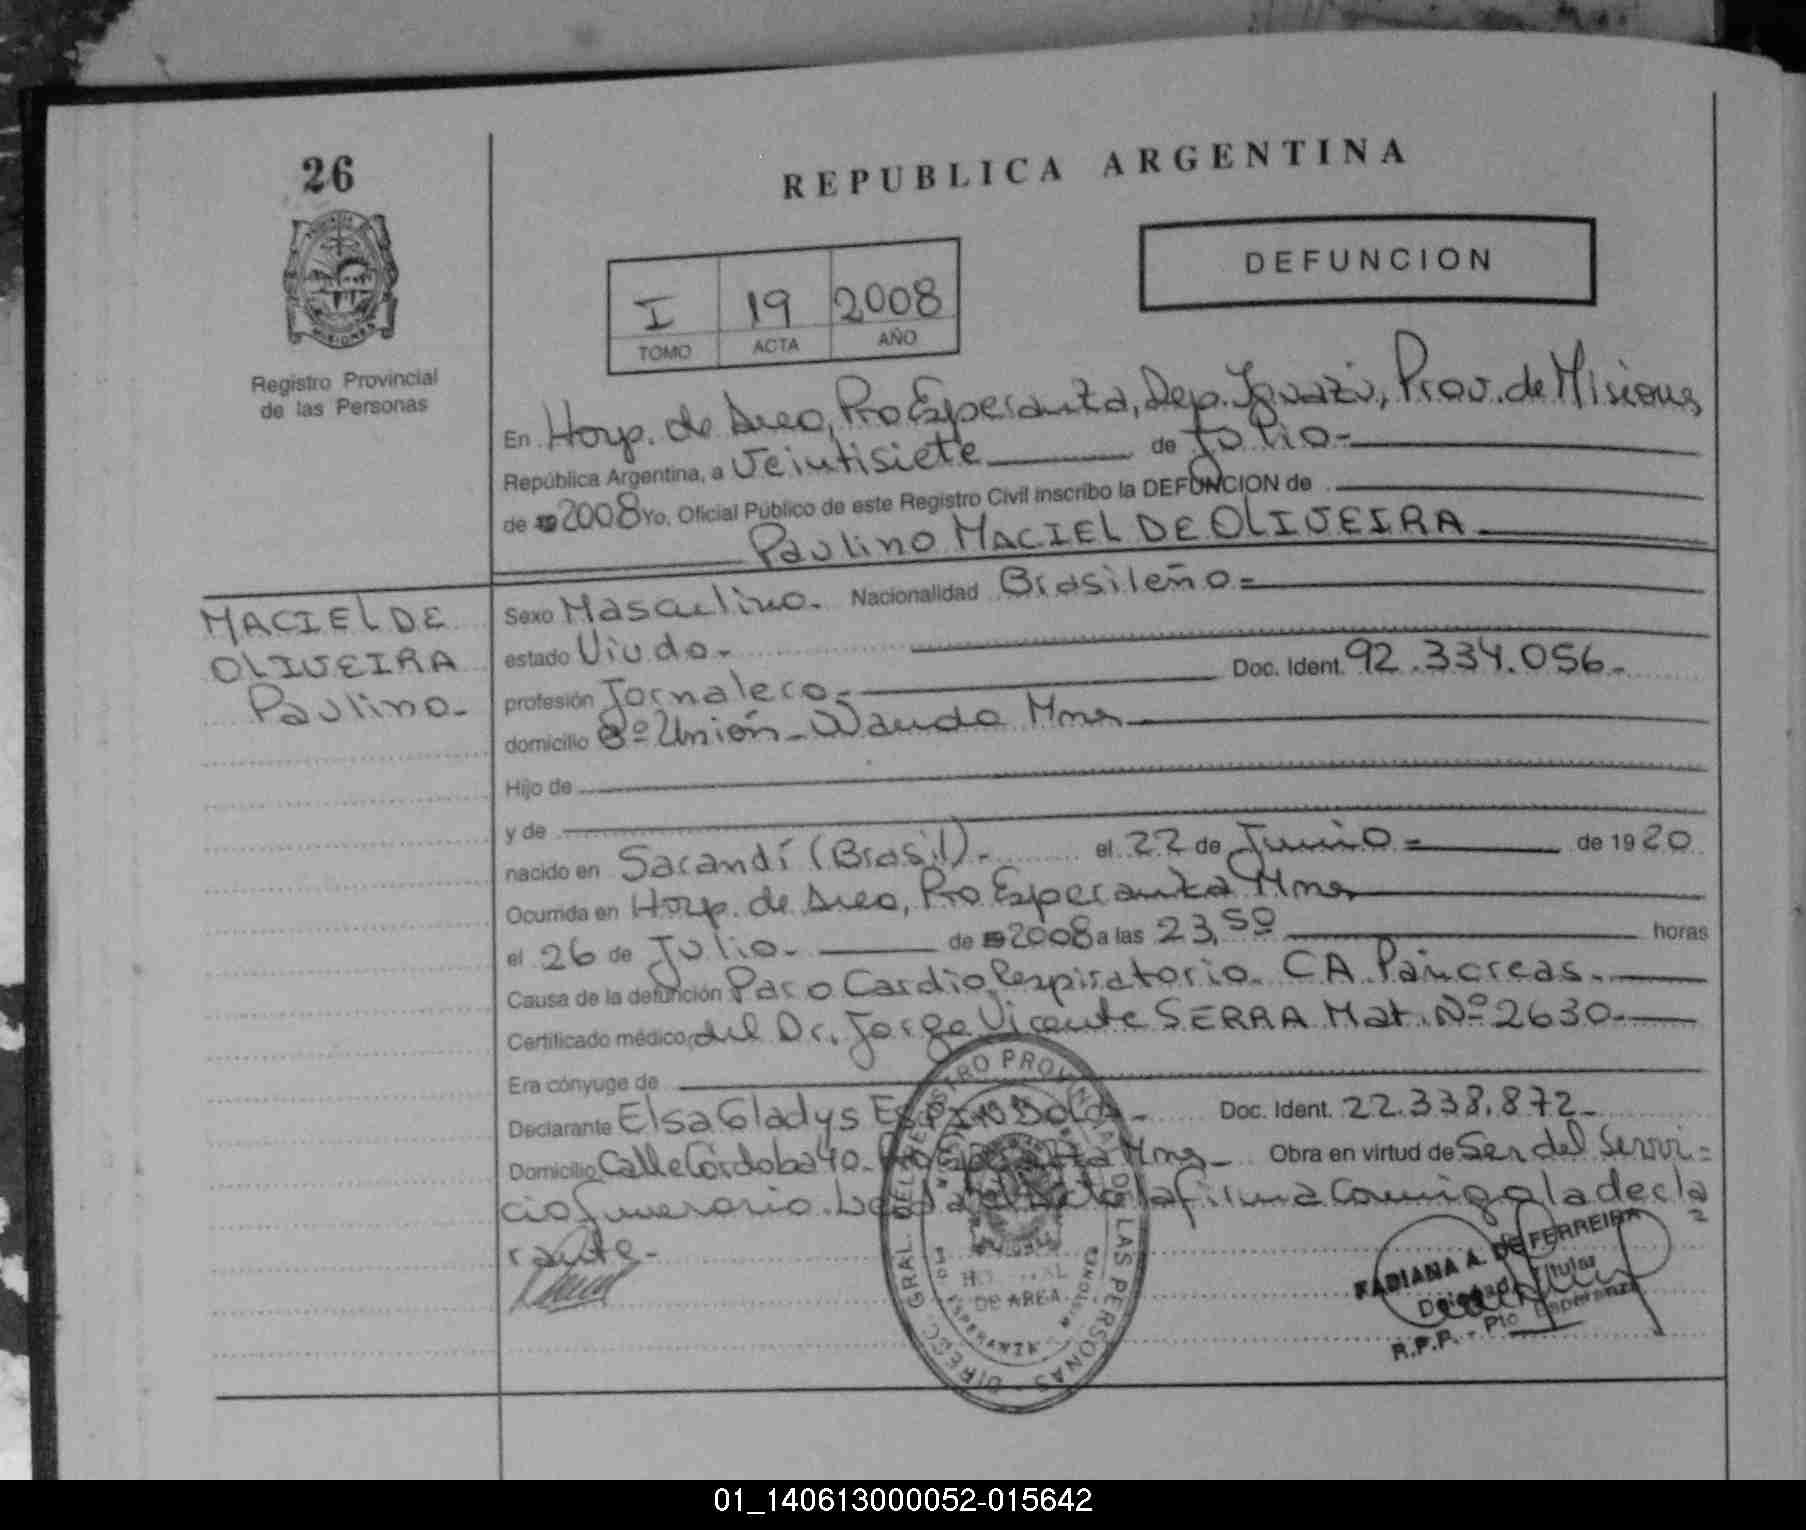 26
REPUBLICA ARGENTINA
DEFUNCION
I 19 2008
TOMO ACTA AÑO
MISIONES
Registro Provincial
de las Personas
En Hosp. de Area, Pto Esperanza, Dep. Iguazú, Prov. de Misiones
República Argentina, a Veintisiete de Julio.-
de 2008 Yo, Oficial Público de este Registro Civil inscribo la DEFUNCION de
Paulino MACIEL DE OLIVEIRA
MACIEL DE
OLIVEIRA
Paulino.-
Sexo Masculino. Nacionalidad Brasileño.=
estado Viudo.-
profesión Jornalero.- Doc. Ident. 92.334.056.-
domicilio Bº Unión - Wanda Mnes
Hijo de
y de
nacido en Sarandí (Brasil).- el 22 de Junio.= de 1920
Ocurrida en Hosp. de Area, Pto Esperanza Mnes
el 26 de Julio.- de 2008 a las 23,50 horas
Causa de la defunción Paro Cardio Respiratorio. CA. Páncreas.
Certificado médico del Dr. Jorge Vicente SERRA Mat. Nº 2630.-
Era cónyuge de
Declarante Elsa Gladys Doc. Ident. 22.338.872.-
Domicilio Calle Córdoba 40. Mnes - Obra en virtud de Ser del Servi=
cio funerario. el Acta la firma Conmigo la decla
rante.-
DIREC. GRAL. DEL REGISTRO PROVINCIAL DE LAS PERSONAS
DE AREA
FABIANA A. DE FERREIRA
Delegada Titular
R.P.P. - Pto Esperanza
01_140613000052-015642